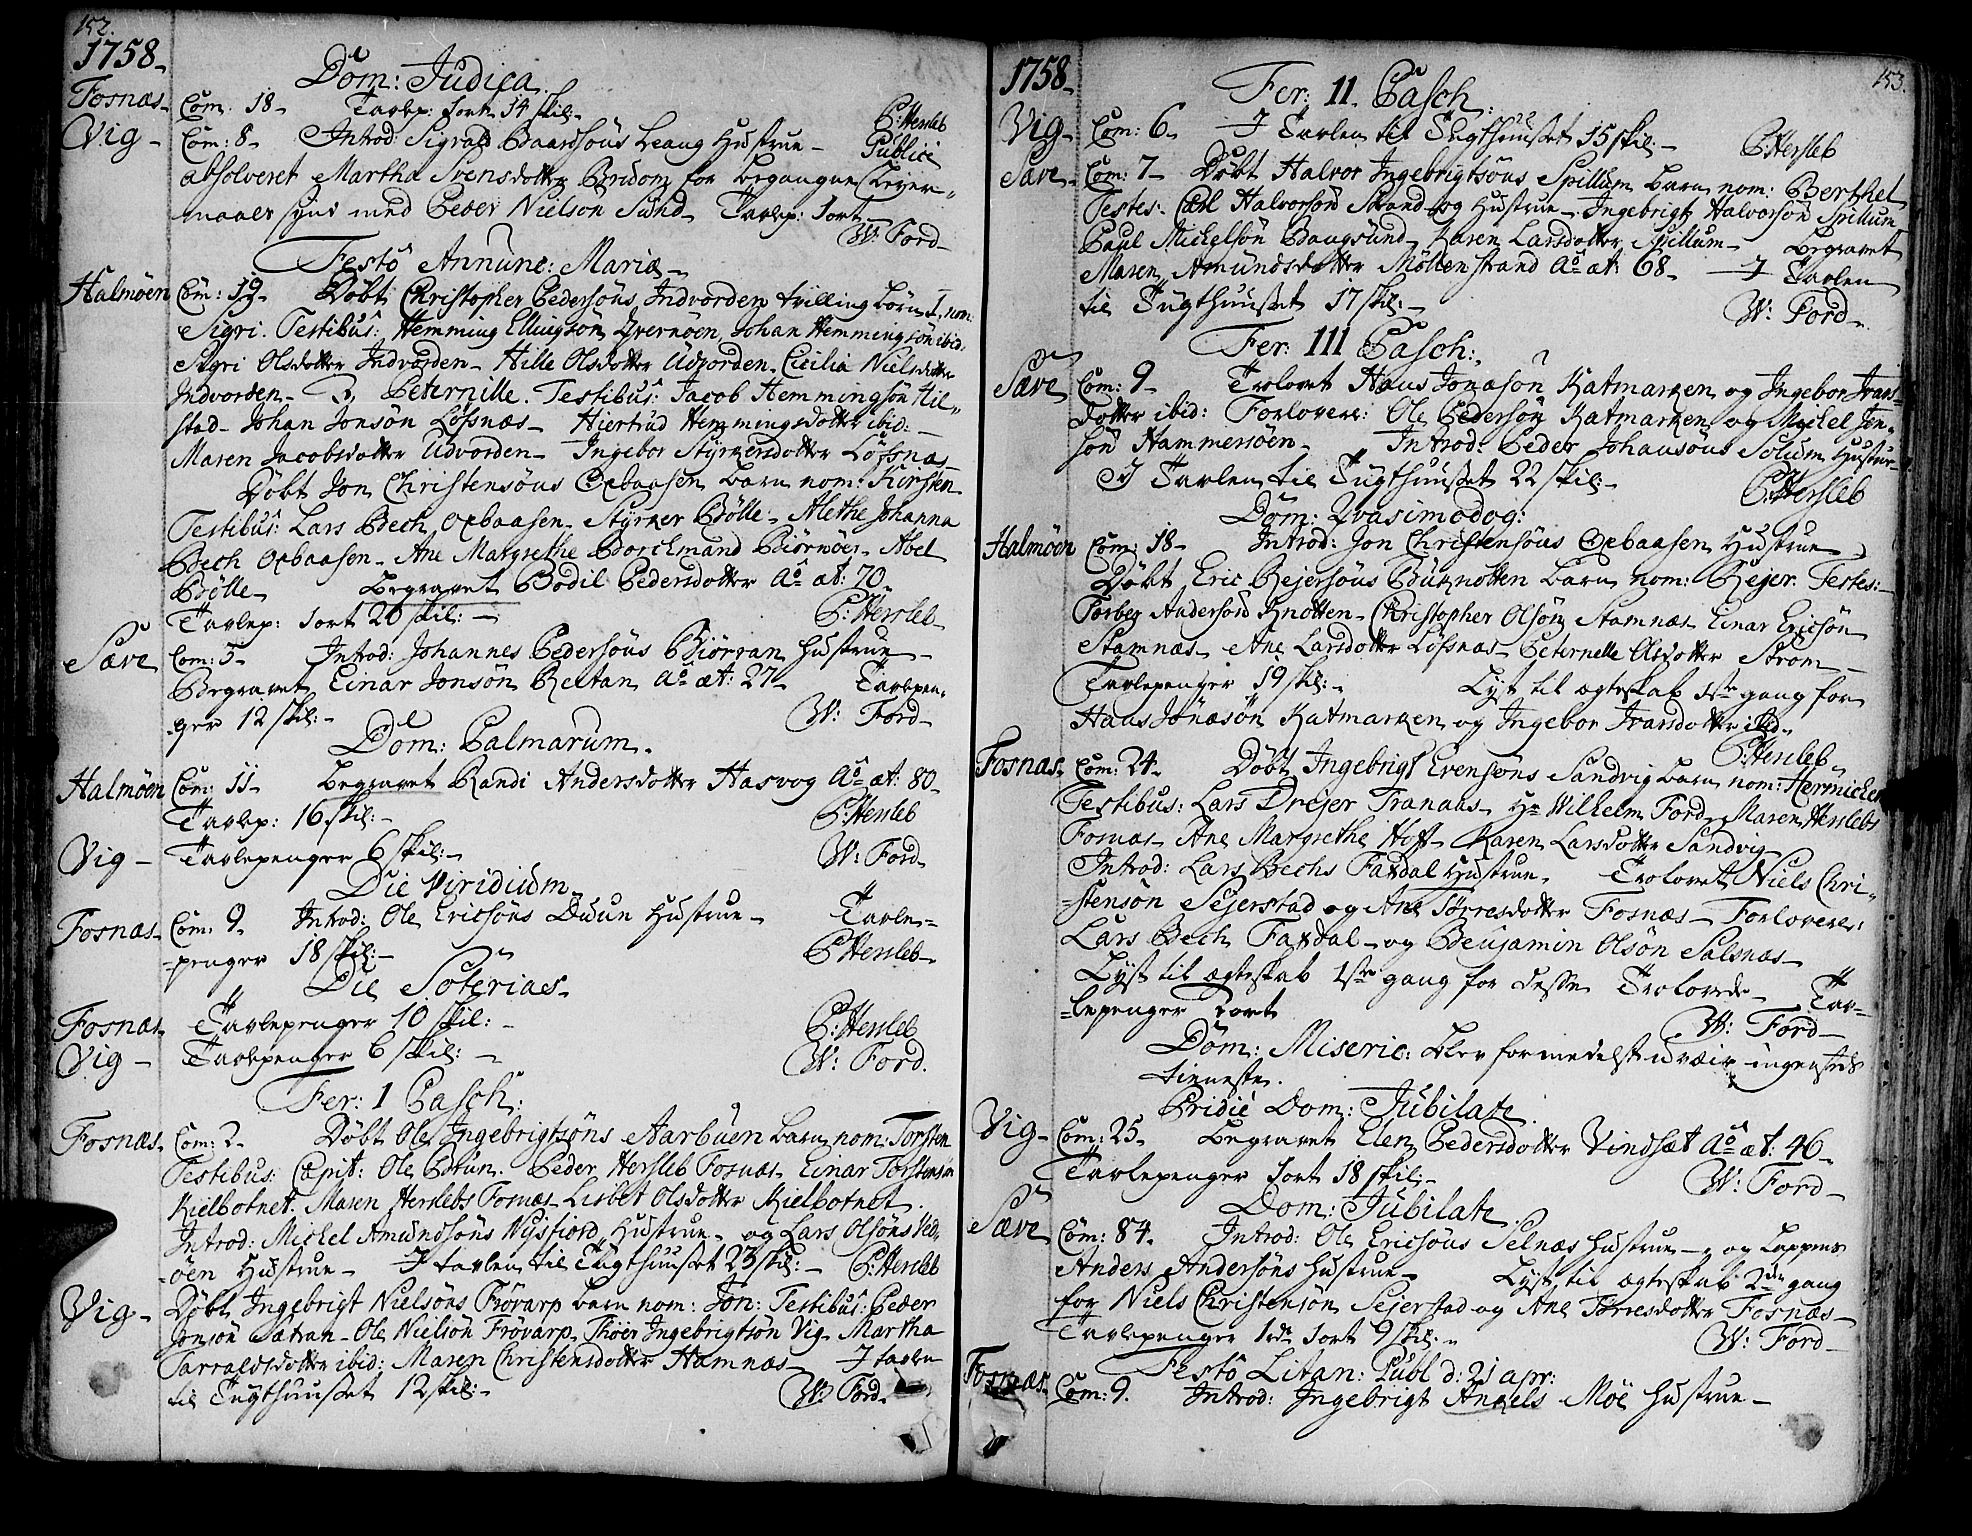 152.
1758.
Dom: Judica.
Fosnæs. Com. 18. Tavlep: 1ort 14 skil.
P: Hersleb
Vig. Com: 8. Introd: Sigvald Baardsøns Leang Hustrue. Publicé
absolveret Martha Svensdotter Bridom for begangne Lejer-
maals synd med Peder Nielson Sund. Tavlep: 1ort.
W: Ford.
Festo Annunc: Mariæ.
Halmøen Com: 19. Døbt Christopher Pedersøns Indvorden tvilling børn 1, nom:
Sigri. Testibus: Hemming Ellingsøn Qvernøen, Johan Hemmingsøn ibid.
Sigri Olsdotter Indvorden. Hille Olsdotter Udvorden. Cecilia Nielsdotter
Indvorden. 2, Peternille. Testibus: Jacob Hemmingsøn Hil-
stad. Johan Jonsøn Løfsnæs. Hiertrud Hemmingsdotter ibid:
Maren Jacobsdotter Udvorden. Ingebor Styrkersdotter Løfsnæs
Døbt Jon Christensøns Opbaasen barn nom: Kirsten.
Testibus: Lars Bech Opbaasen. Styrker Bølle. Alethe Johanna
Bech Opbaasen. Ane Margrethe Borchmand Biørnøer. Abel
Bølle. Begravet Bodil Pedersdotter Aõ æt: 70.
Tavlep: 1ort 20 skil:
P: Hersleb.
Sæve Com: 5. Introd: Johannes Pedersøns Biørran Hustrue.
Begravet Einar Jonsøn Rectan Aõ æt: 27. Tavlepen-
ger 12 skil:
W: Ford.
Dom: Palmarum.
Halmøen Com: 11. Begravet Randi Andersdotter Hasvog Aõ æt: 80.
Tavlep: 16 skil:
P: Hersleb
Vig. Tavlepenger 6 skil:
W: Ford.
Die Viridium.
Fosnæs. Com: 9. Introd: Ole Ericsøns Duun Hustrue. Tavle-
penger 18 skil:
P: Hersleb.
Die Soterias.
Fosnæs. Tavlepenger 10 skil:
P: Hersleb
Vig. Tavlepenger 6 skil:
W: Ford.
Fer: 1 Pasch:
Fosnæs. Com: 2. Døbt Ole Ingebrigtsøns Aarbuen barn nom: Torsten
Testibus: Capit: Ole Bruun. Peder Hersleb Fosnæs. Einar Torstensøn
Kielbotnet. Maren Herslebs Fosnæs. Lisbet Olsdotter Kielbotnet.
Introd: Mickel Amundsøns Nysfiord Hustrue. og Lars Olsøns Ved-
øen Hustrue. I tavlen til Tugthuuset 23 skil: P: Hersleb
Vig. Døbt Ingebrigt Nielsøns Frøvarp barn nom: Jon: Testibus: Peder
Jonsøn Sætran. Ole Nielsøn Frøvarp. Thoer Ingebrigtsøn Vig. Martha
Tarraldsdotter ibid: Maren Christensdotter Hamnæs. I tavlen
til Tugthuuset 12 skil:
W: Ford.
153.
1758.
Fer: 11. Pasch:
Vig. Com: 6. I Tavlen til Tugthuuset 15 skil:
P: Hersleb
Sæve. Com: 7. Døbt Halvor Ingebrigtsøns Spillum barn nom: Berthel
Testes: Carl Halvorsøn Strand og Hustrue. Ingebrigt Halvorsøn Spillum
Paul Mickelsøn Bangsund. Karen Larsdotter Spillum. Begravet
Maren Amundsdotter Møllenstrand Aõ æt: 68. I Tavlen
til Tugthuuset 17 skil:
W: Ford.
Fer: 111 Pasch:
Sæve Com: 9. Trolovet Hans Jonasøn Katmarken og Ingebor Ivars-
dotter ibid: Forlovere: Ole Pedersøn Katmarken og Mickel Jen-
søn Hammersøen. Introd: Peder Johansøns Solum Hustrue.
I Tavlen til Tugthuuset 22 skil:
P: Hersleb
Dom: Qvasimodog:
Halmøen Com: 18. Introd: Jon Christensøns Opbaasen Hustrue
Døbt Eric Rejersøns Buknotten barn nom: Rejer. Testes:
Torber Andersøn Knotten. Christopher Olsøn Stamnæs. Einar Ericsøn
Stamnæs. Ane Larsdotter Løfsnæs. Peternelle Olsdotter Strøm
Tavlepenger 19 skil: Lyst til ægteskab 1ste gang for
Hans Jonasøn Katmarken og Ingebor Ivarsdotter ibid.
P: Hersleb.
Fosnæs. Com: 24. Døbt Ingebrigt Evensøns Sandvig barn nom: Hermichen
Testibus: Lars Drejer Tranaas. Hr Wilhelm Ford. Maren Herslebs
Fosnæs. Ane Margrethe Hoff. Karen Larsdotter Sandvig.
Introd: Lars Bechs Faxdal Hustrue. Trolovet Niels Chri-
stensøn Sejerstad og Ane Tørresdotter Fosnæs. Forlovere:
Lars Bech Faxdal og Benjamin Olsøn Salsnæs.
Lyst til ægteskab 1ste gang for desse Trolovede. Tav-
lepenger 2ort
W: Ford.
Dom: Miseric: blev formedelst u-væir ingensteds
tieneste.
Pridie Dom: Jubilate.
Vig. Com: 25. Begravet Elen Pedersdotter Vindsæt Aõ æt: 46.
Tavlepenger 1ort 18 skil:
W: Ford.
Dom: Jubilate.
Sæve Com: 84. Introd: Ole Ericsøns Selnæs Hustrue. og Lappens
Anders Andersøns Hustrue. Lyst til ægteskab 2den gang
for Niels Christensøn Sejerstad og Ane Tørresdotter Fosnæs.
Tavlepenger 1rdr 1ort 9 skil:
W: Ford.
Festo Litan: Publ d: 21 apr:
Fosnæs. Com: 9. Introd: Ingebrigt Angels Moe Hustrue.